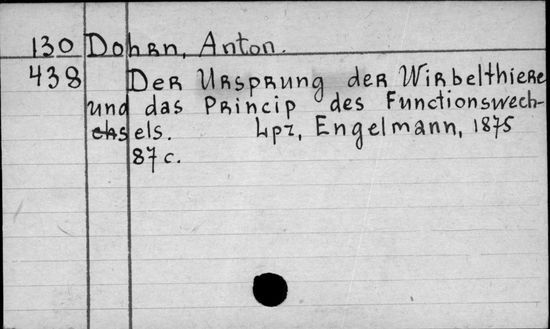 130 Dohrn, Anton.
438 Der Ursprung der Wirbelthiere
und das Princip des Functionswech-
sels. Lpz, Engelmann, 1875
87 c.